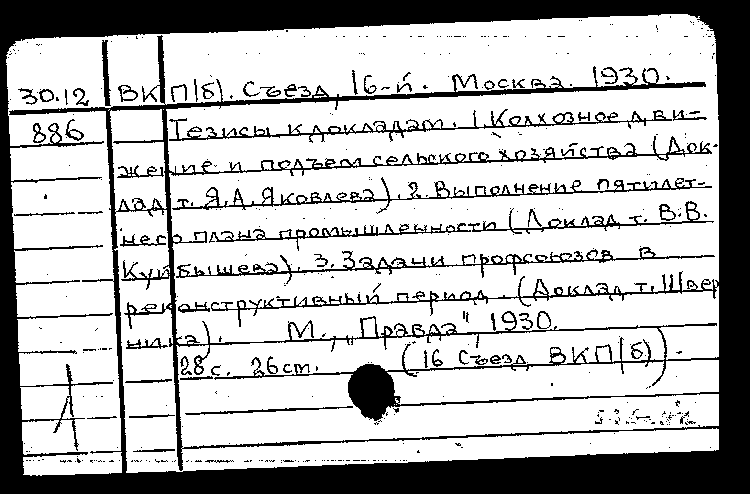 30.12 ВКП(б). Съезд, 16-й. Москва. 1930.
886 Тезисы к докладам. 1. Колхозное дви-
жение и подъем сельского хозяйства (Док-
лад т. Я.А. Яковлева). 2. Выполнение пятилет-
него плана промышленности (Доклад т. В.В.
Куйбышева). 3. Задачи профсоюзов в
реконструктивный период. (Доклад т. Швер
ника). М., "Правда", 1930.
28с. 26см. (16 съезд ВКП(б)).